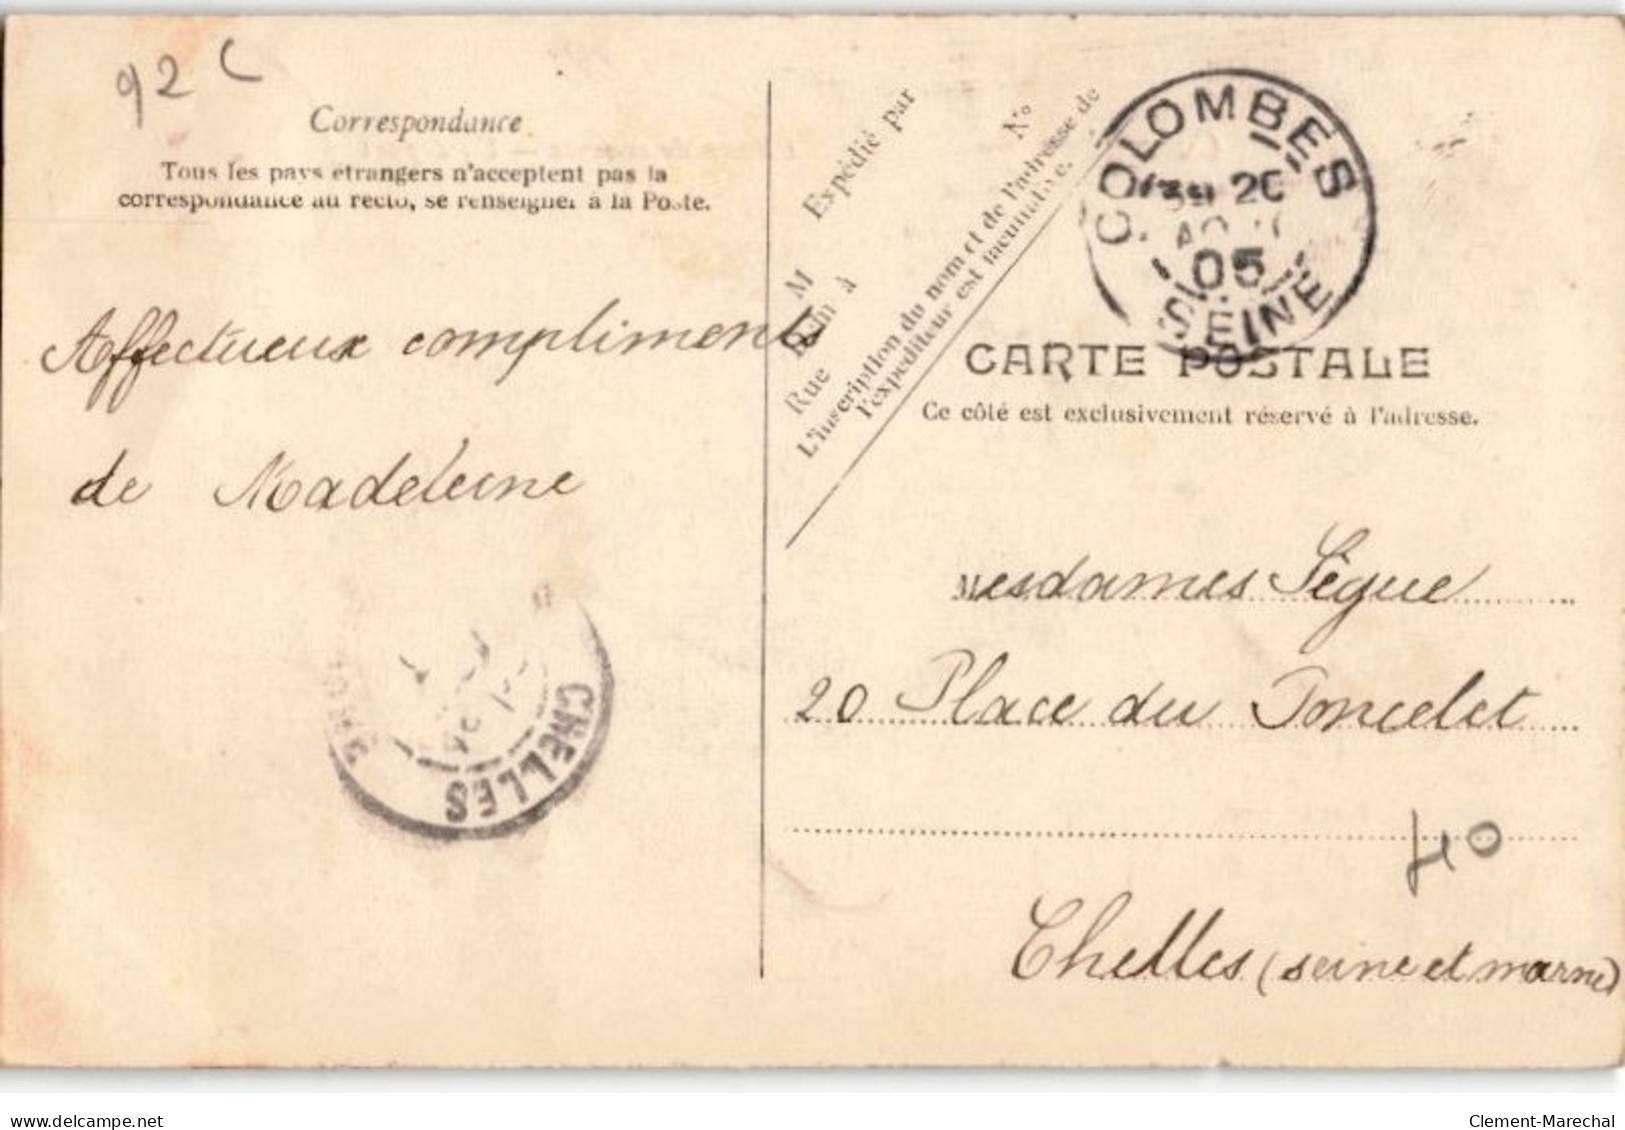 92 C
Correspondance
Tous les pays étrangers n'acceptent pas la
correspondance au recto, se renseigner à la Poste.
Affectueux compliments
de Madeleine
CHELLES
Expédié par
M
Rue
à
N°
L'inscription du nom et de l'adresse de
l'expéditeur est facultative.
COLOMBES
20
05
SEINE
CARTE POSTALE
Ce côté est exclusivement réservé à l'adresse.
Mesdames Ségue
20 Place du Poncelet
40
Chelles (seine et marne)
delcampe.net
Clement-Marechal